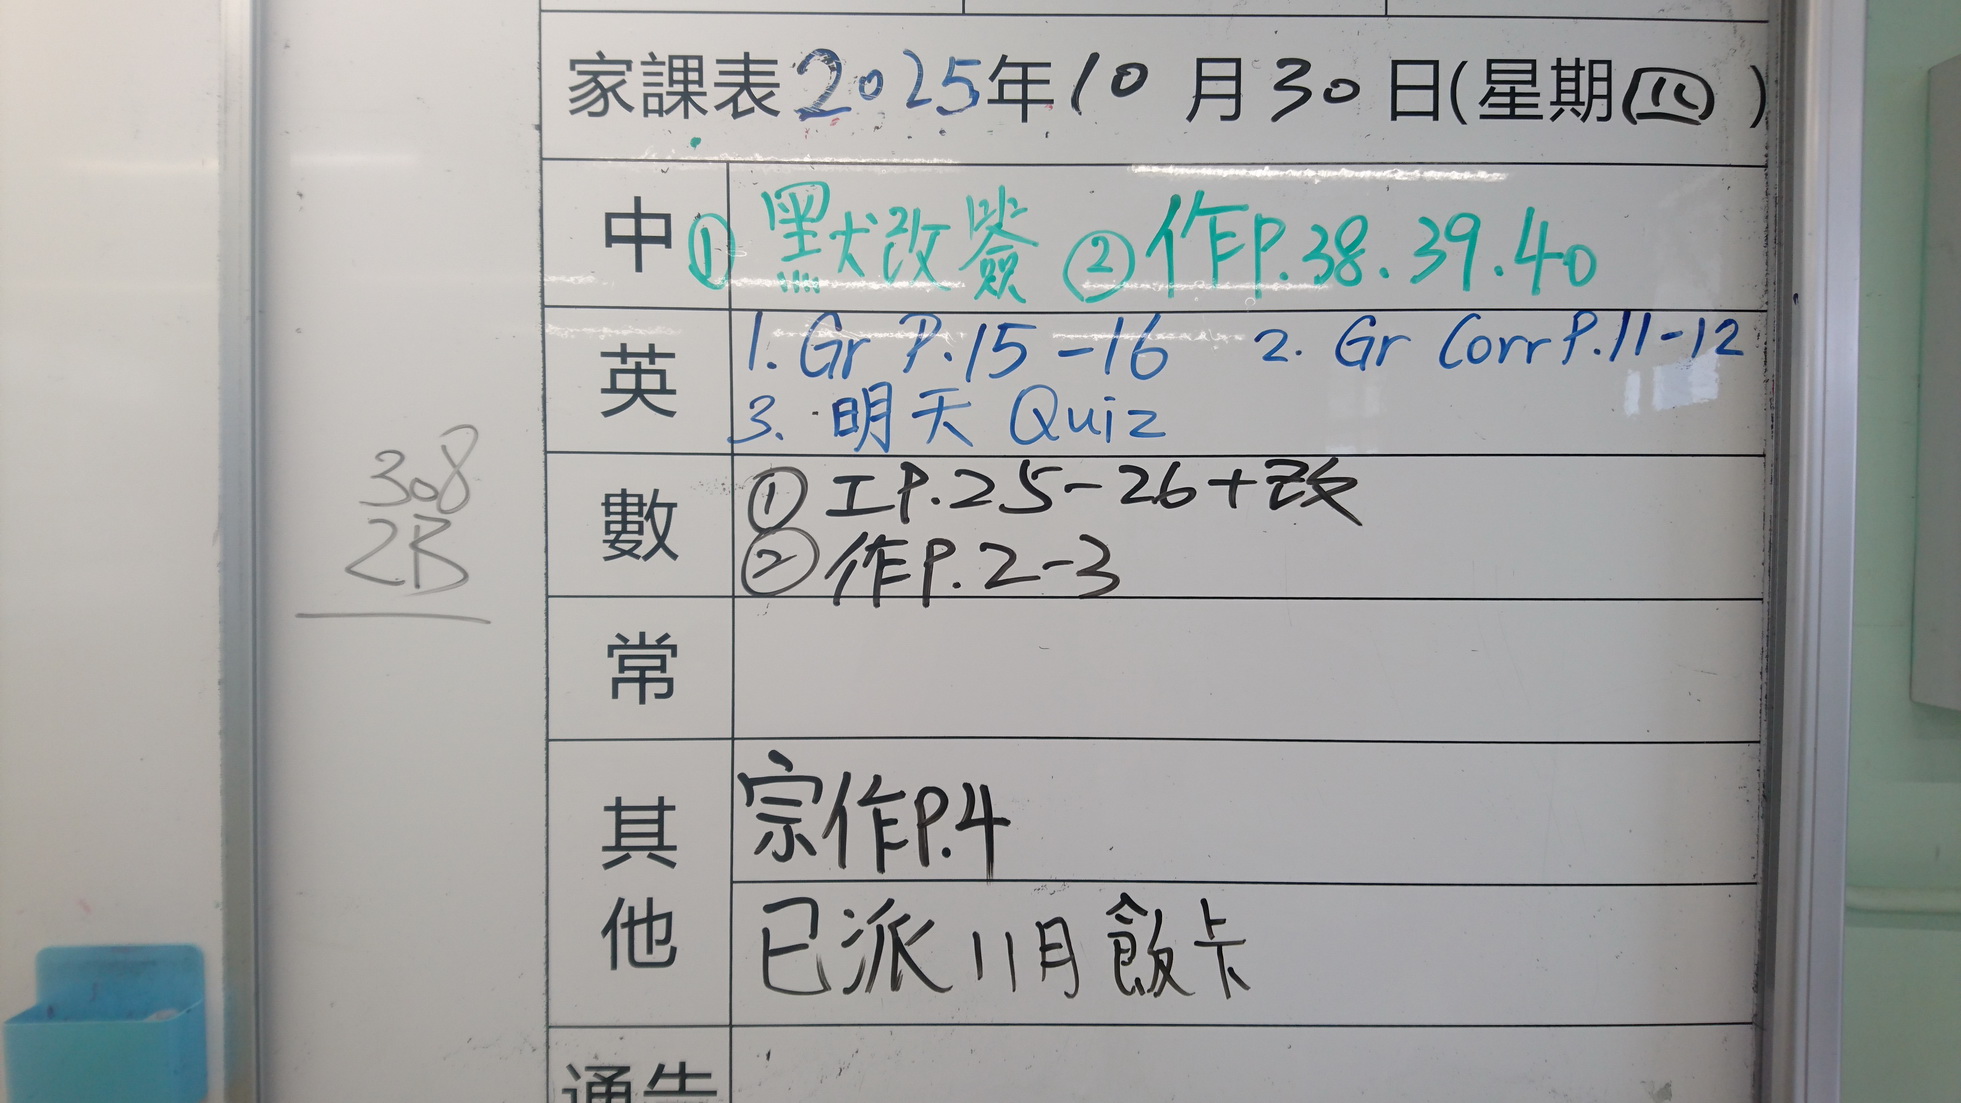 家課表2025年10月30日(星期四)
中 ① 默改簽 ② 作P.38.39.40
英 1. Gr P.15-16 2. Gr Corr P.11-12
3. 明天 Quiz
308
2B
數 ① 工P.25-26+改
② 作P.2-3
常
其他 宗作P.4
已派11月飯卡
通告